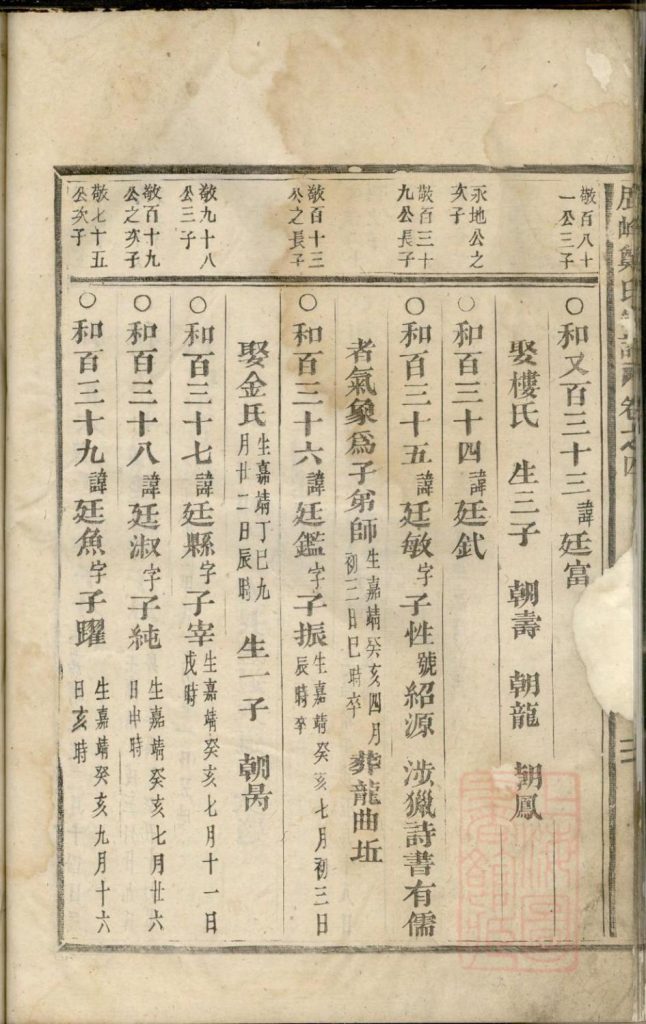 峰鄭氏宗譜 卷之四
敬百八十
一公三子
○和又百三十三諱廷富
娶樓氏 生三子 朝壽 朝龍 朝鳳
永地公之
次子
○和百三十四諱廷武
敬百三十
九公長子
○和百三十五諱廷敏字子性號紹源 涉獵詩書有儒
者氣象爲子弟師生嘉靖癸亥四月
初三日巳時卒葬龍曲坵
敬百十三
公之長子
○和百三十六諱廷鑑字子振生嘉靖癸亥七月初三日
辰時卒
娶金氏生嘉靖丁巳九
月廿二日辰時 生一子 朝昺
敬九十八
公三子
○和百三十七諱廷縣字子宰生嘉靖癸亥七月十一日
戌時
敬百十九
公之次子
○和百三十八諱廷淑字子純生嘉靖癸亥七月廿六
日申時
敬七十五
公次子
○和百三十九諱廷魚字子躍生嘉靖癸亥九月十六
日亥時